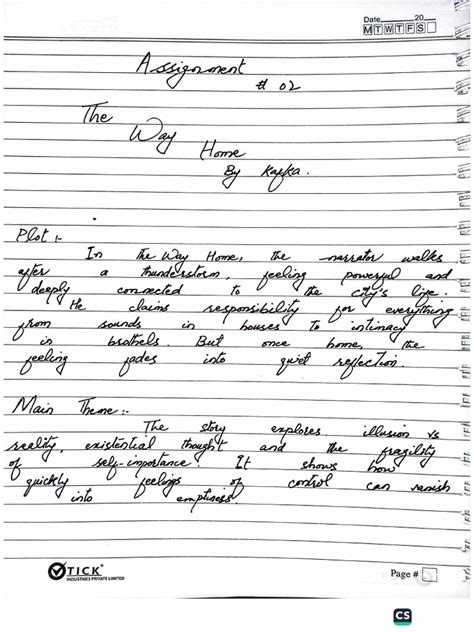 Date 20
M T W T F S
Assignment
# 02
The
Way
Home
By Kafka.
Plot :-
In The Way Home, the narrator walks
after a thunderstorm, feeling powerful and
deeply connected to the city's life.
He claims responsibility for everything
from sounds in houses to intimacy
in brothels. But once home, the
feeling fades into quiet reflection.
Main Theme :-
The story explores illusion vs
reality, existential thought and the fragility
of self-importance. It shows how
quickly feelings of control can vanish
into emptiness
TICK
INDUSTRIES PRIVATE LIMITED
Page #
CS